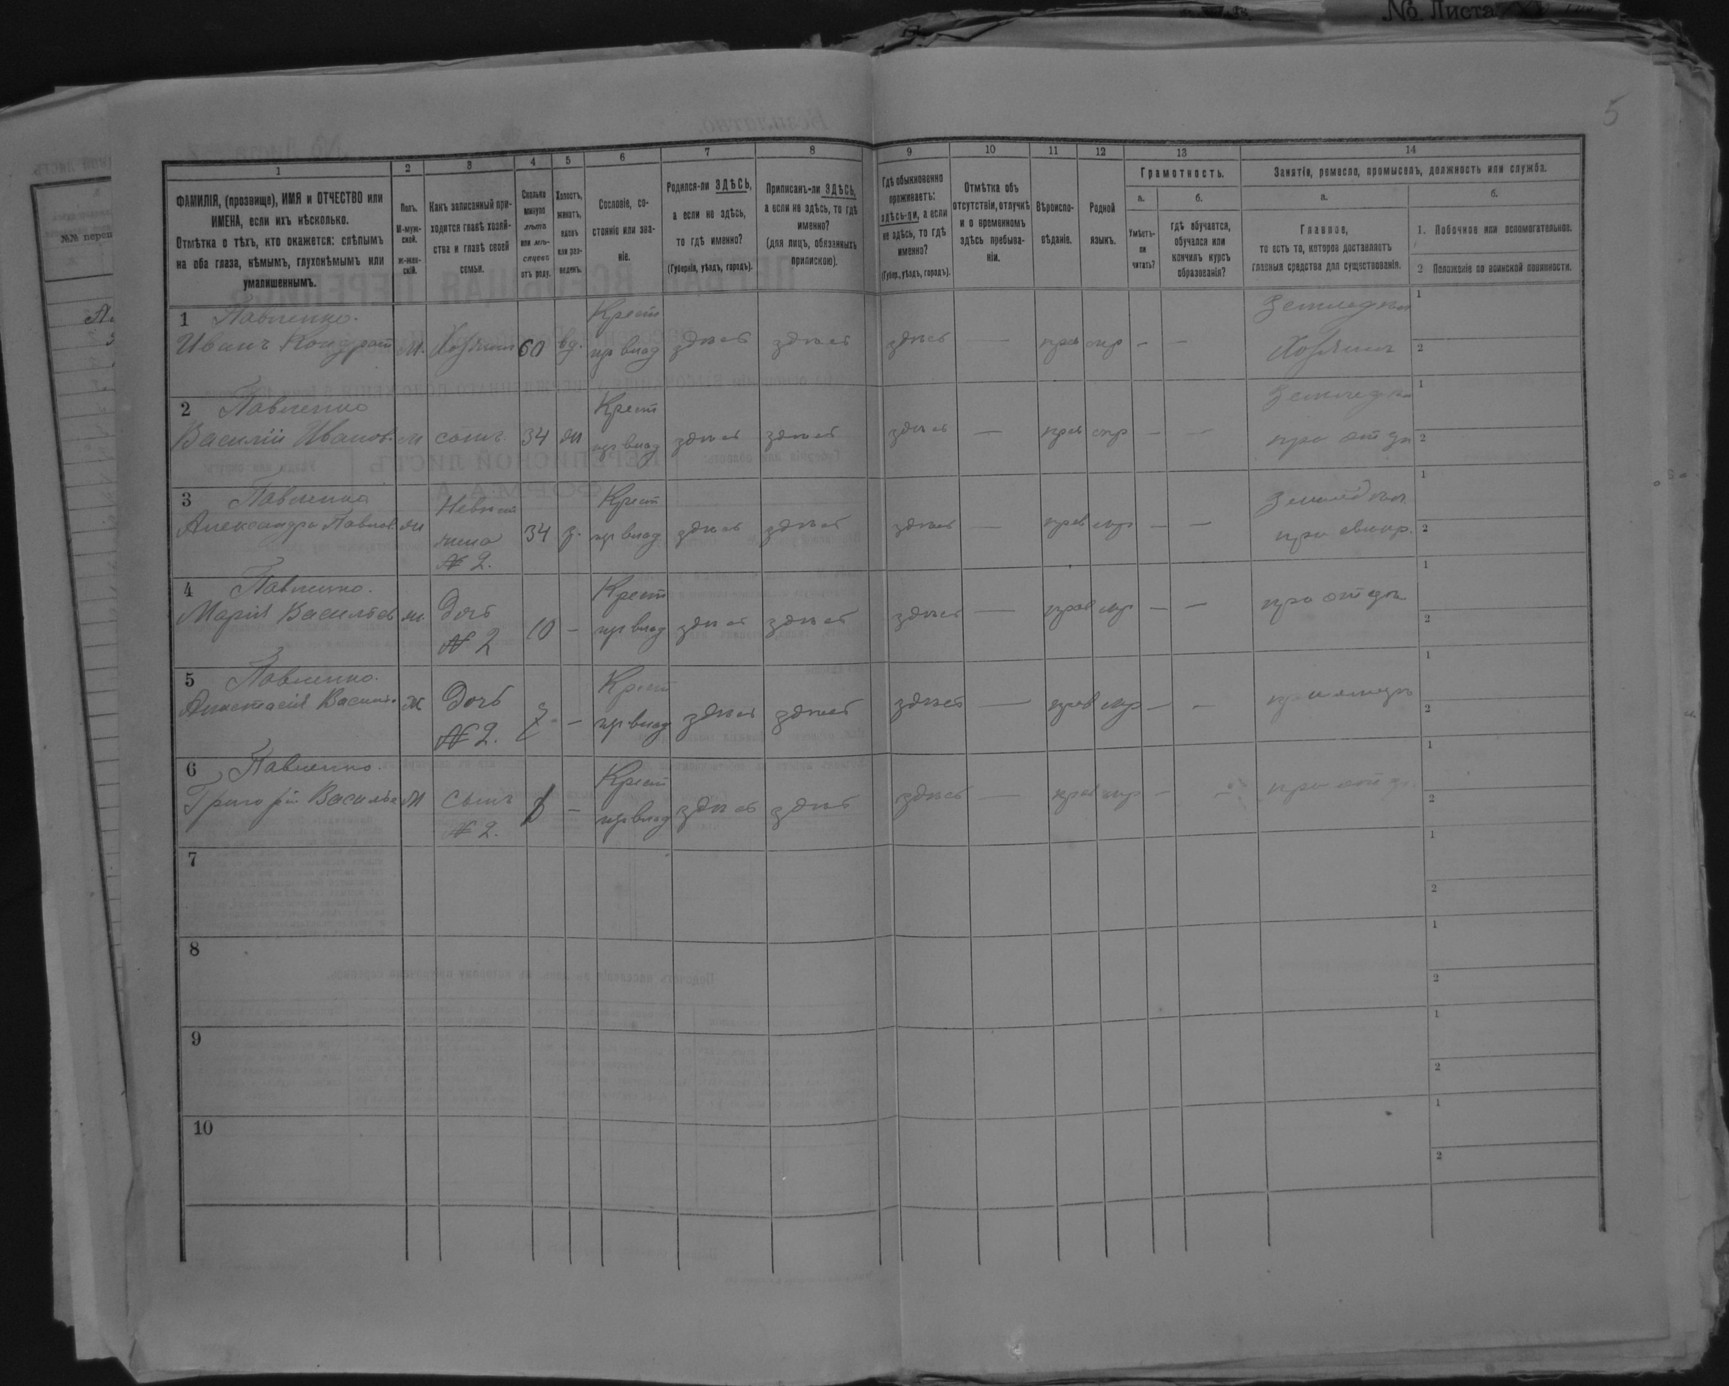 No Листа XI
5
1
2
3
4
5
6
7
8
9
10
11
12
13
14
ФАМИЛІЯ, (прозвище), ИМЯ и ОТЧЕСТВО или
ИМЕНА, если ихъ нѣсколько.
Отмѣтка о тѣхъ, кто окажется: слѣпымъ
на оба глаза, нѣмымъ, глухонѣмымъ или
умалишеннымъ.
Полъ.
М-муж-
ской.
Ж-жен-
скій.
Какъ записанный при-
ходится главѣ хозяй-
ства и главѣ своей
семьи.
Сколько
минуло
лѣтъ
или мѣ-
сяцевъ
отъ роду.
Холостъ,
женатъ,
вдовъ
или раз-
веденъ.
Сословіе, со-
стояніе или зва-
ніе.
Родился-ли ЗДѢСЬ,
а если не здѣсь,
то гдѣ именно?
(Губернія, уѣздъ, городъ).
Приписанъ-ли ЗДѢСЬ,
а если не здѣсь, то гдѣ
именно?
(для лицъ, обязанныхъ
припискою).
Гдѣ обыкновенно
проживаетъ:
здѣсь-ли, а если
не здѣсь, то гдѣ
именно?
(Губер., уѣздъ, городъ).
Отмѣтка объ
отсутствіи, отлучкѣ
и о временномъ
здѣсь пребыва-
ніи.
Вѣроиспо-
вѣданіе.
Родной
языкъ.
Грамотность.
а.
Умѣетъ-
ли
читать?
б.
гдѣ обучается,
обучался или
кончилъ курсъ
образованія?
Занятіе, ремесло, промыселъ, должность или служба.
а.
Главное,
то есть то, которое доставляетъ
главныя средства для существованія.
б.
1. Побочное или вспомогательное.
2 Положеніе по воинской повинности.
1 Павленко.
Иванъ Кондрат М. Хозяинъ 60 вд. Крест
пр влад здѣсь здѣсь здѣсь — прав мр — — Земледѣл
Хозяинъ
1
2
2 Павленко
Василій Иванов. М сынъ 34 жн Крест
пр влад здѣсь здѣсь здѣсь — прав мр — — Земледѣл
при отцѣ
1
2
3 Павленко
Александра Павлов Ж Невѣст
жена
№ 2. 34 з. Крест
пр влад здѣсь здѣсь здѣсь — прав мр — — Земледѣл
при свекр.
1
2
4 Павленко.
Марія Васильев ж. Дочь
№ 2 10 — Крест
пр влад здѣсь здѣсь здѣсь — прав мр — — при отцѣ
1
2
5 Павленко.
Анастасія Василь. Ж Дочь
№ 2. — Крест
пр влад здѣсь здѣсь здѣсь — прав мр — — при отцѣ
1
2
6 Павленко.
Григорій Василье М Сынъ
№ 2. — Крест
пр влад здѣсь здѣсь здѣсь — прав мр — — при отцѣ
1
2
7
1
2
8
1
2
9
1
2
10
1
2